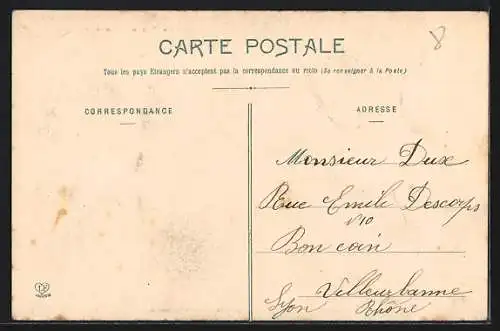 CARTE POSTALE
8
Tous les pays Etrangers n'acceptent pas la correspondance au recto (Se renseigner à la Poste)
CORRESPONDANCE
ADRESSE
Monsieur Dux
Rue Emile Descorps
N10
Bon coin
Villeurbanne
Lyon Rhône